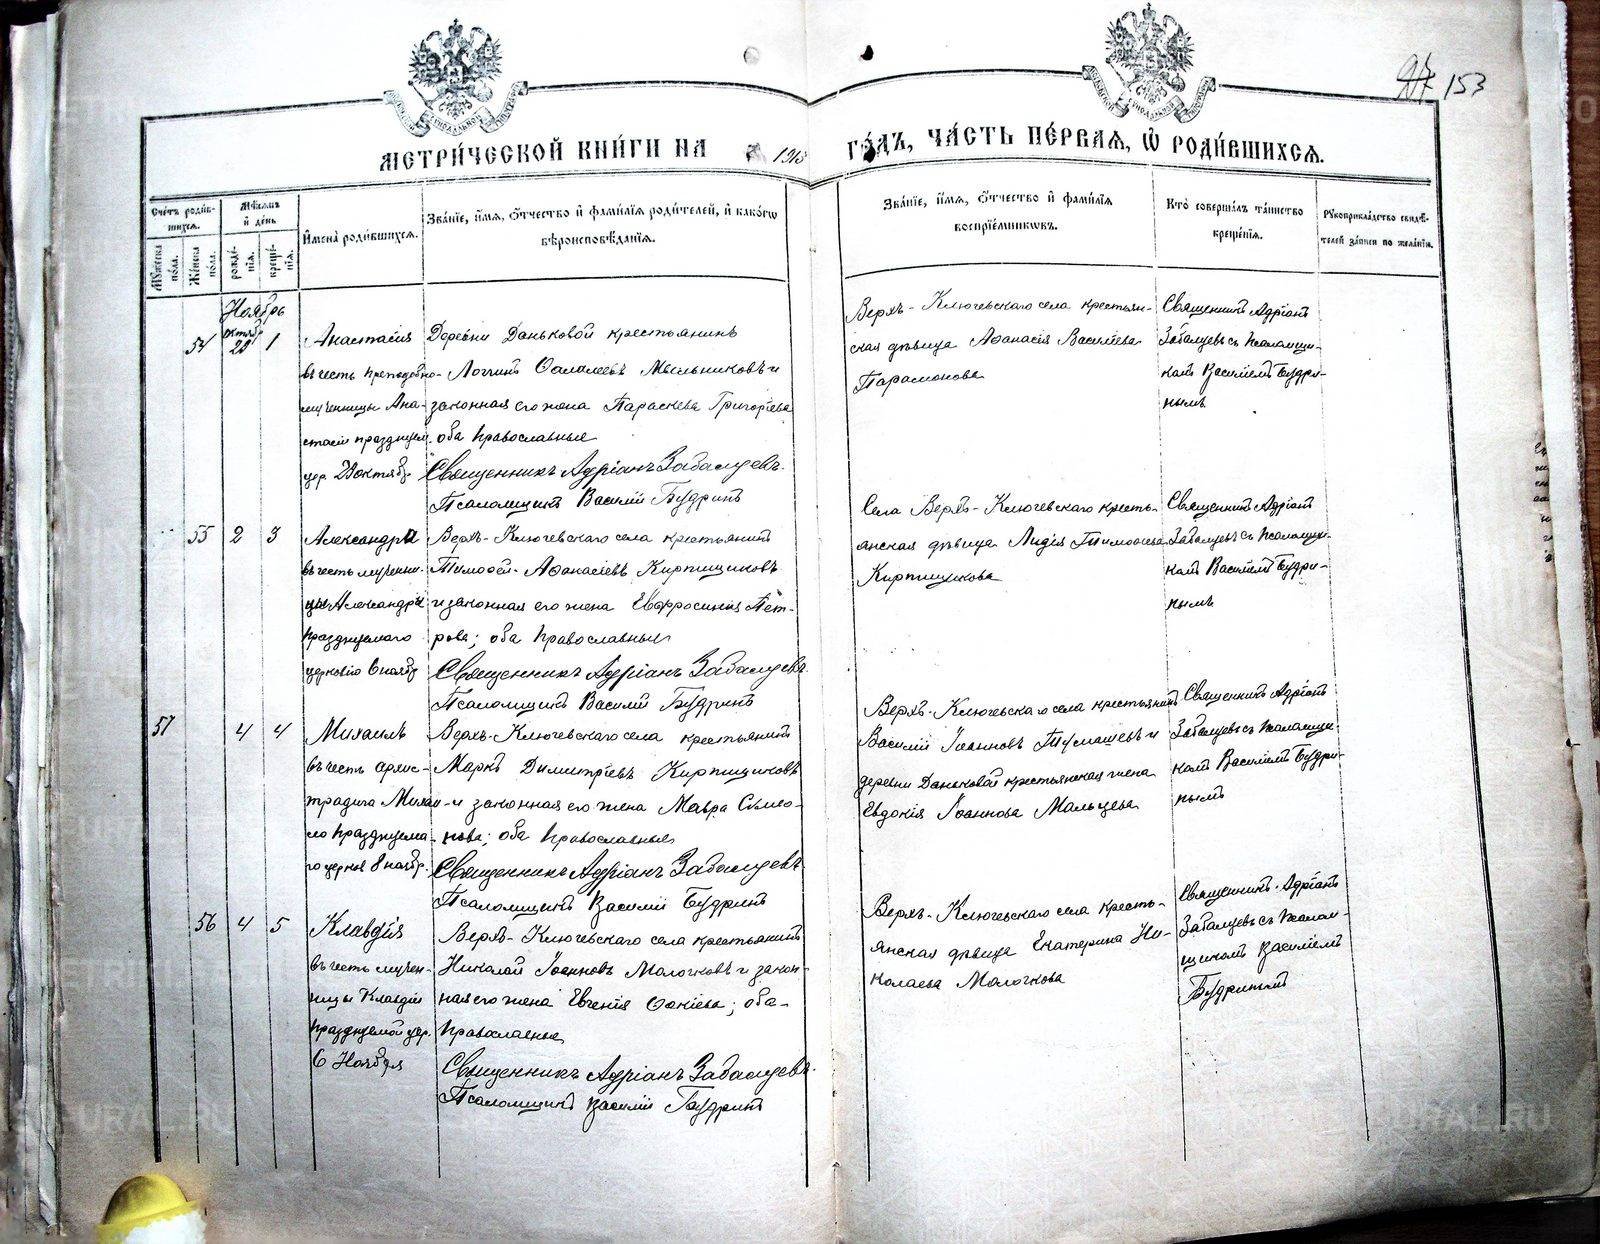 153
МЕТРИЧЕСКОЙ КНИГИ НА 1913 ГОДЪ, ЧАСТЬ ПЕРВАЯ, Ѡ РОДИВШИХСЯ.
Счетъ родив-
шихся.
Мужеска пола.
Женска пола.
Мѣсяцъ и день
рожде-
нія.
креще-
нія.
Имена родившихся.
Званіе, имя, отчество и фамилія родителей, и какого
вѣроисповѣданія.
Званіе, имя, отчество и фамилія
воспріемниковъ.
Кто совершалъ таинство
крещенія.
Рукоприкладство свидѣ-
телей записи по желанію.
Ноябрь
54
октябр
29 1
Анастасія
въ честь преподобно-
мученицы Ана-
стасіи празднуем.
цер. 29 октябр.
Деревни Даньковой крестьянинъ
Логгинъ Мыльниковъ и
законная его жена Параскева Григоріева
оба православные
Священникъ Адріанъ Забалуевъ.
Псаломщикъ Василій Будринъ
Верхъ-Ключевскаго села крестьян-
ская дѣвица Аѳанасія Василіева
Парамонова
Священникъ Адріанъ
Забалуевъ съ псаломщи-
комъ Василіемъ Будри-
нымъ
55 2 3
Александра
въ честь мучени-
цы Александры
празднуемаго
церковію 6 ноябр
Верхъ-Ключевскаго села крестьянинъ
Тимоѳей Аѳанасіевъ Кирпищиковъ
и законная его жена Евфросинія Пет-
рова; оба православные
Священникъ Адріанъ Забалуевъ
Псаломщикъ Василій Будринъ
Села Верхъ-Ключевскаго кресть-
янская дѣвица Лидія Тимоѳеева
Кирпищикова
Священникъ Адріанъ
Забалуевъ съ псаломщи-
комъ Василіемъ Будри-
нымъ
57 4 4
Михаилъ
въ честь архис-
тратига Михаи-
ла празднуема-
го церкв 8 ноябр.
Верхъ-Ключевскаго села крестьянинъ
Маркъ Димитріевъ Кирпищиковъ
и законная его жена Мавра Симео-
нова; оба православные
Священникъ Адріанъ Забалуевъ
Псаломщикъ Василій Будринъ
Верхъ-Ключевскаго села крестьянинъ
Василій Іоанновъ Тумашевъ и
деревни Даньковой крестьянская жена
Евдокія Іоаннова Мальцева
Священникъ Адріанъ
Забалуевъ съ псаломщи-
комъ Василіемъ Будри-
нымъ
56 4 5
Клавдія
въ честь мучен-
ницы Клавдіи
празднуемой цер.
6 Ноября
Верхъ-Ключевскаго села крестьянинъ
Николай Іоанновъ Молочковъ и закон-
ная его жена Евгенія Фокіева; оба
православные
Священникъ Адріанъ Забалуевъ.
Псаломщикъ Василій Будринъ
Верхъ-Ключевскаго села кресть-
янская дѣвица Екатерина Ни-
колаева Молочкова
Священникъ Адріанъ
Забалуевъ съ псалом-
щикомъ Василіемъ
Будринымъ